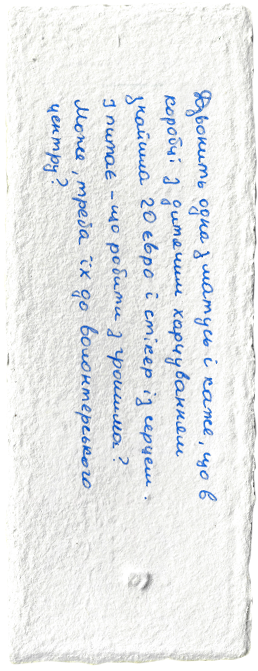 Дзвонить одна з матусь і каже, що в
коробці з дитячим харчуванням
знайшла 20 євро і стікер із серцем.
І питає - що робити з грошима?
Може, треба їх до волонтерського
центру?